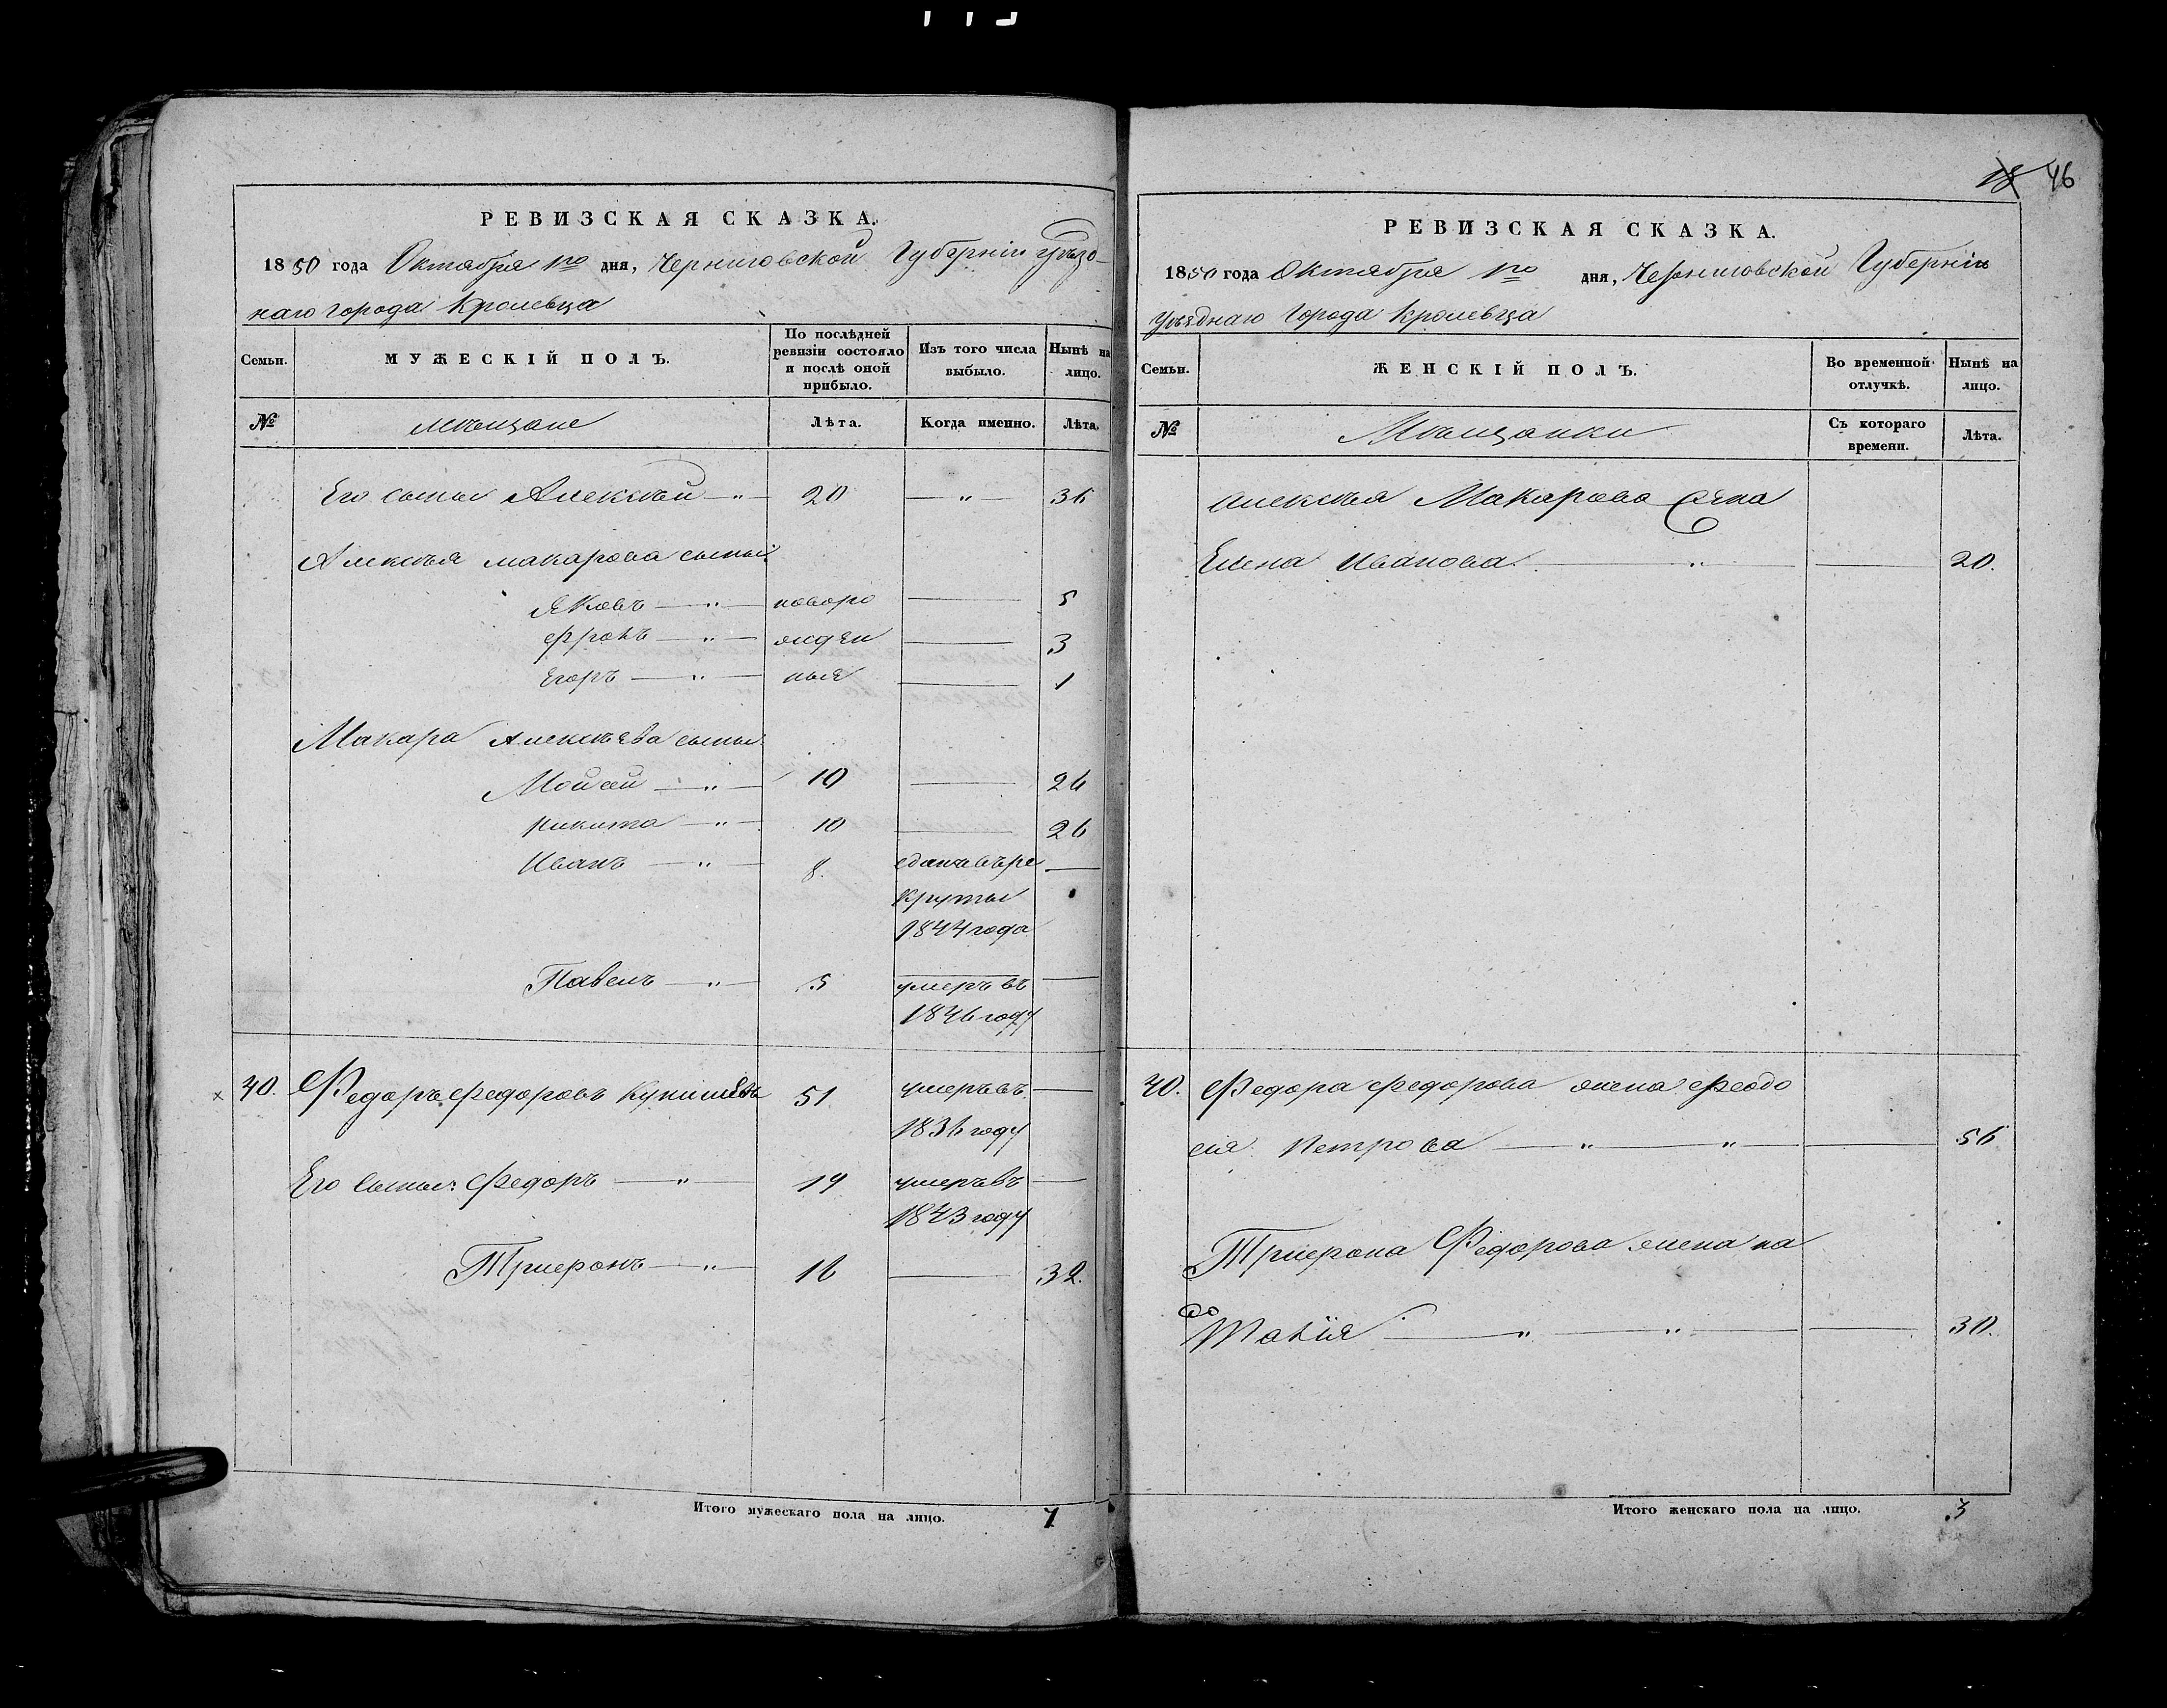 РЕВИЗСКАЯ СКАЗКА.
1850 года Октября 1го дня, Черниговской Губернiи уѣзд-
наго города Кролевца
Семьи.
МУЖЕСКIЙ ПОЛЪ.
По послѣдней ревизiи состояло и послѣ оной прибыло.
Изъ того числа выбыло.
Нынѣ на лицо.
№
мѣщане
Лѣта.
Когда именно.
Лѣта.
Его сыны Алексѣй — " — 20 — " — 36
Алексѣя макарова сыны:
Яковъ — " — новоро — 5
Фролъ — " — жден — 3
Егоръ — " — ныя — 1
Макара Алексѣева сыны:
Мойсей — " — 10 — 26
Никита — " — 10 — 26
Иванъ — " — 8. сданъ въ ре —
круты
1844 года
Павелъ — " — 5 умеръ въ —
1846 году
40. Федоръ Федоровъ 51 умеръ въ —
1836 году
Его сыны: Федоръ — " — 19 умеръ въ —
1843 году
Трифонъ — " — 16 — 32.
Итого мужескаго пола на лицо. 7
18 46
РЕВИЗСКАЯ СКАЗКА.
1850 года Октября 1го дня, Черниговской Губернiи
уѣзднаго Города Кролевца
Семьи.
ЖЕНСКIЙ ПОЛЪ.
Во временной отлучкѣ.
Нынѣ на лицо.
№
Мѣщанки
Съ котораго времени.
Лѣта.
Алексѣя Макарова жена
Елена Иванова — " — — 20.
40. Федора Федорова жена Феодо
сiя Петрова — " — " — — 56
Трифона Федорова жена на
танiя — " — " — — 30.
Итого женскаго пола на лицо. 3